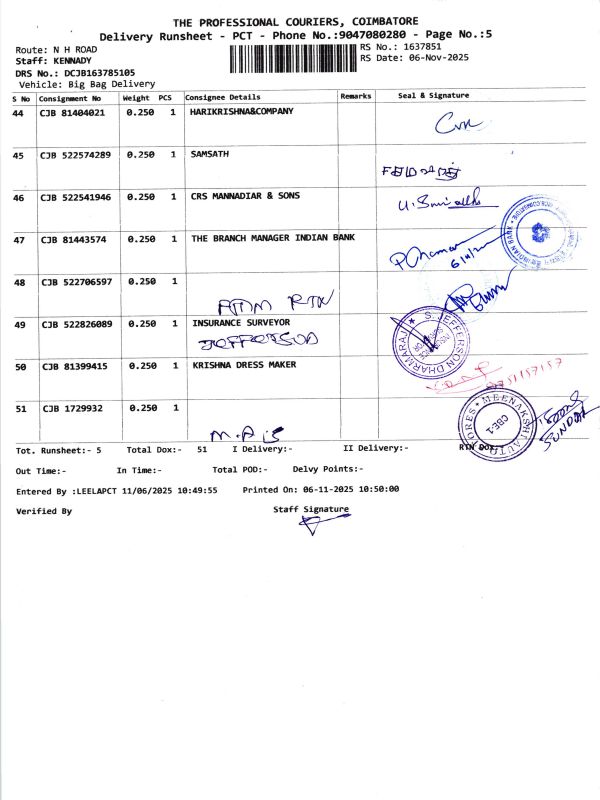 THE PROFESSIONAL COURIERS, COIMBATORE
Delivery Runsheet - PCT - Phone No.:9047080280 - Page No.:5
Route: N H ROAD
RS No.: 1637851
Staff: KENNADY
RS Date: 06-Nov-2025
DRS No.: DCJB163785105
Vehicle: Big Bag Delivery
S No Consignment No Weight PCS Consignee Details Remarks Seal & Signature
44 CJB 81404021 0.250 1 HARIKRISHNA&COMPANY
45 CJB 522574289 0.250 1 SAMSATH
46 CJB 522541946 0.250 1 CRS MANNADIAR & SONS
47 CJB 81443574 0.250 1 THE BRANCH MANAGER INDIAN BANK
6/11/
INDIAN BANK
48 CJB 522706597 0.250 1
RTN
49 CJB 522826089 0.250 1 INSURANCE SURVEYOR
JEFFERSON
S. JEFFERSON DHARMARAJ
50 CJB 81399415 0.250 1 KRISHNA DRESS MAKER
51 CJB 1729932 0.250 1
MEENAKSHI AUTO STORES
CBE-1
SUNDAR
Tot. Runsheet:- 5 Total Dox:- 51 I Delivery:- II Delivery:- RTN DOX
Out Time:- In Time:- Total POD:- Delvy Points:-
Entered By :LEELAPCT 11/06/2025 10:49:55 Printed On: 06-11-2025 10:50:00
Verified By Staff Signature